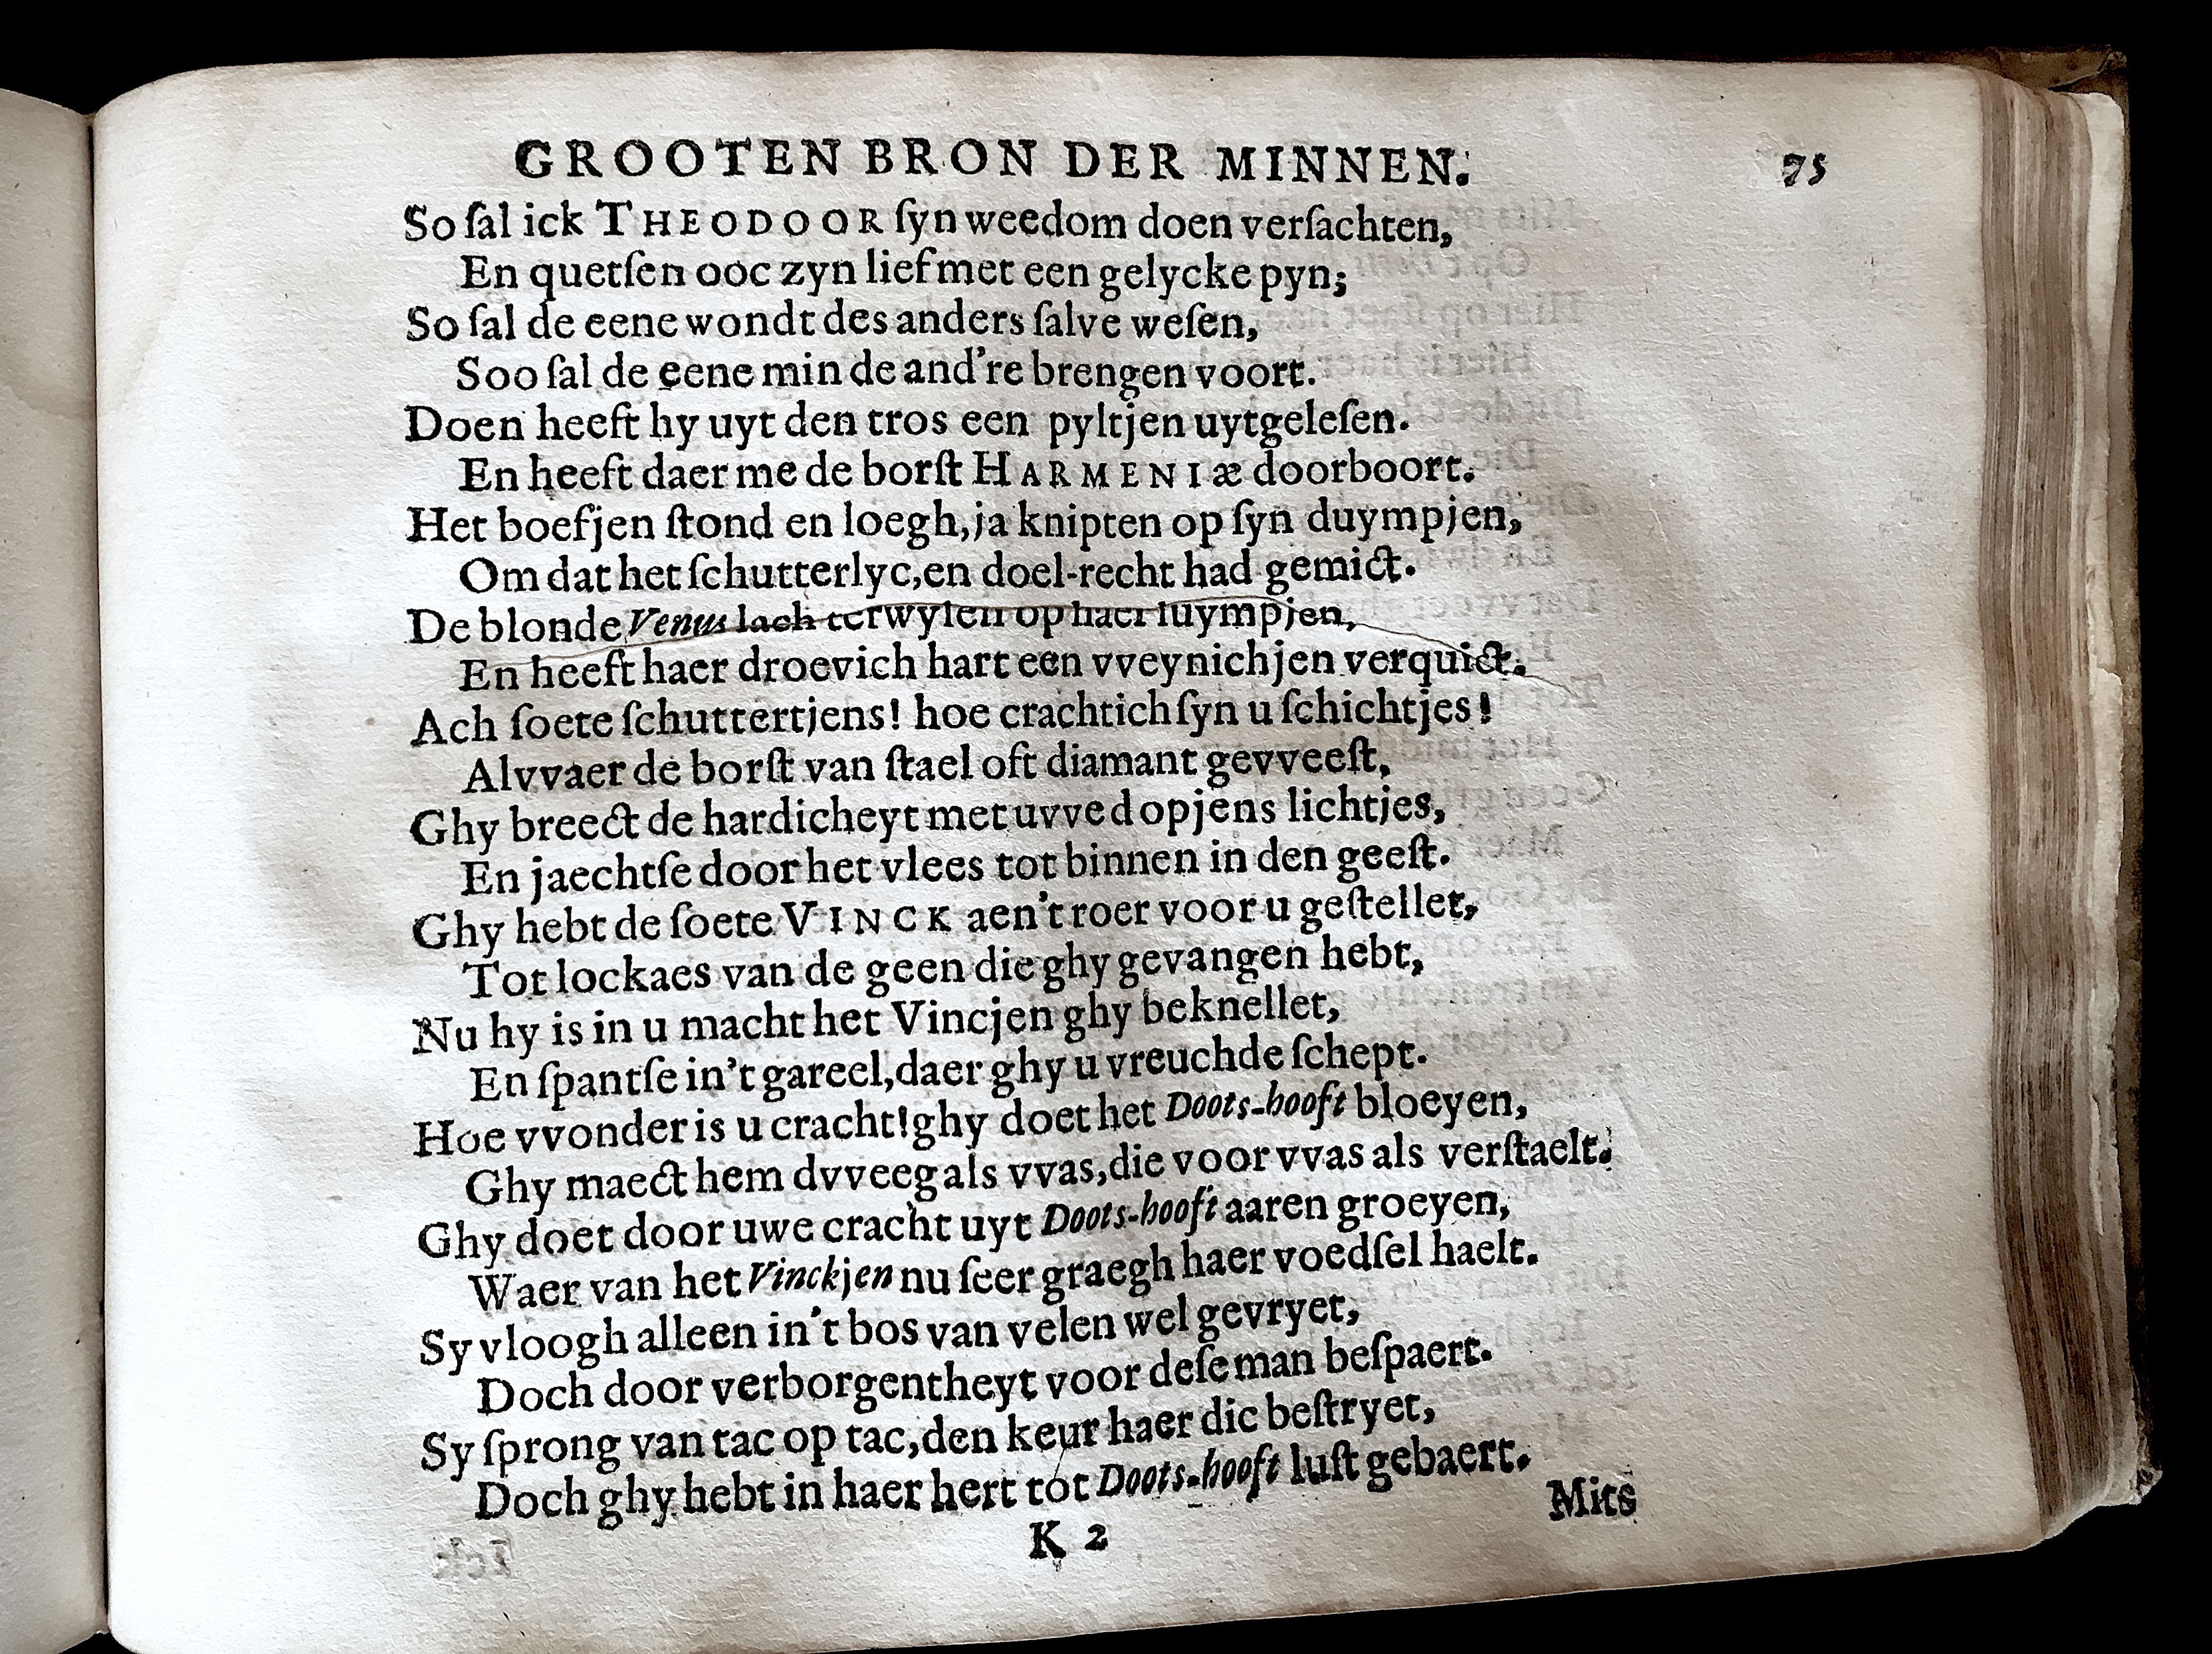 GROOTEN BRON DER MINNEN. 75
So ſal ick THEODOOR ſyn weedom doen verſachten,
En quetſen ooc zyn lief met een gelycke pyn;
So ſal de eene wondt des anders ſalve weſen,
Soo ſal de eene min de and're brengen voort.
Doen heeft hy uyt den tros een pyltjen uytgeleſen.
En heeft daer me de borſt HARMENIæ doorboort.
Het boefjen ſtond en loegh, ja knipten op ſyn duympjen,
Om dat het ſchutterlyc, en doel-recht had gemict.
De blonde Venus lach terwylen op haer luympjen,
En heeft haer droevich hart een vveynichjen verquict.
Ach ſoete ſchuttertjens! hoe crachtich ſyn u ſchichtjes!
Alvvaer de borſt van ſtael oft diamant gevveeſt,
Ghy breect de hardicheyt met uvve dopjens lichtjes,
En jaechtſe door het vlees tot binnen in den geeſt.
Ghy hebt de ſoete VINCK aen't roer voor u geſtellet,
Tot lockaes van de geen die ghy gevangen hebt,
Nu hy is in u macht het Vincjen ghy beknellet,
En ſpantſe in't gareel, daer ghy u vreuchde ſchept.
Hoe vvonder is u cracht! ghy doet het Doots-hooft bloeyen,
Ghy maect hem dvveeg als vvas, die voor vvas als verſtaelt.
Ghy doet door uwe cracht uyt Doots-hooft aaren groeyen,
Waer van het Vinckjen nu ſeer graegh haer voedſel haelt.
Sy vloogh alleen in't bos van velen wel gevryet,
Doch door verborgentheyt voor deſe man beſpaert.
Sy ſprong van tac op tac, den keur haer dic beſtryet,
Doch ghy hebt in haer hert tot Doots-hooft luſt gebaert.
Mits
K 2